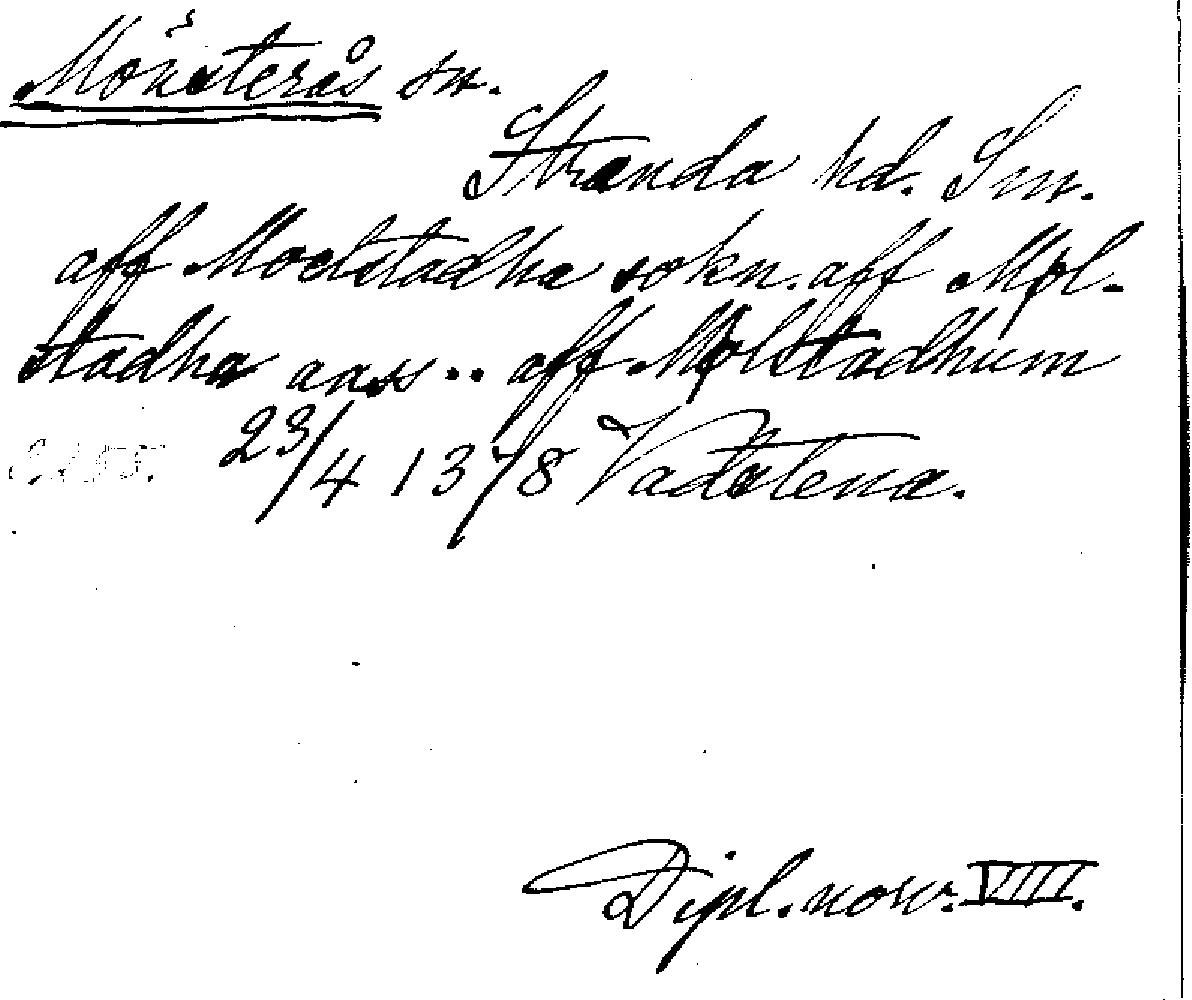 Mönsterås sn.
Stranda hd. Sm.
aff Moelstadha sokn. aff Møl-
stadha aass .. aff Mølstadhum
23/4 1378 Vadstena.
Dipl. norv. VIII.